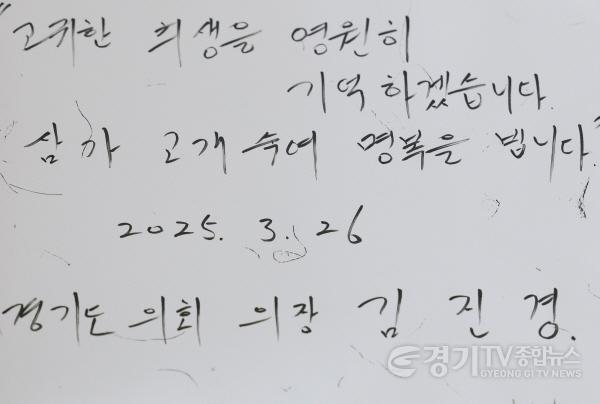 "고귀한 희생을 영원히
기억 하겠습니다.
삼가 고개 숙여 명복을 빕니다."
2025. 3. 26
경기도 의회 의장 김 진 경.
경기TV종합뉴스
GYEONG GI TV NEWS